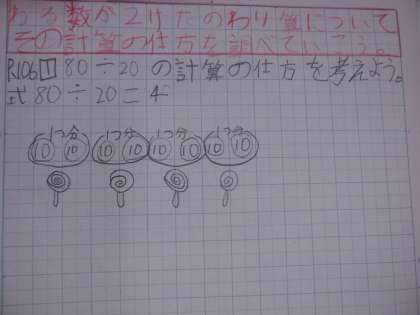 わる数が2けたのわり算について
その計算の仕方を調べていこう。
P.106 1 80÷20の計算の仕方を考えよう。
式80÷20=4
1つ分 1つ分 1つ分 1つ分
10 10 10 10 10 10 10 10